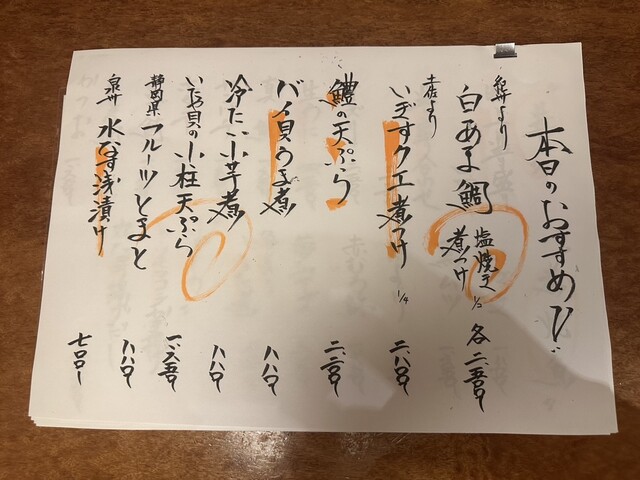 本日のおすすめ
より
白あま鯛 塩焼き 煮つけ 1/2 各二、五〇〇
土佐より
クエ煮つけ 1/4 二、八〇〇
鱧の天ぷら 二、二〇〇
バイ貝うま煮 八八〇
冷たい小芋煮 八八〇
いたら貝の小柱天ぷら 一、六五〇
静岡県 フルーツとまと 八八〇
泉州 水なす浅漬け 七〇〇